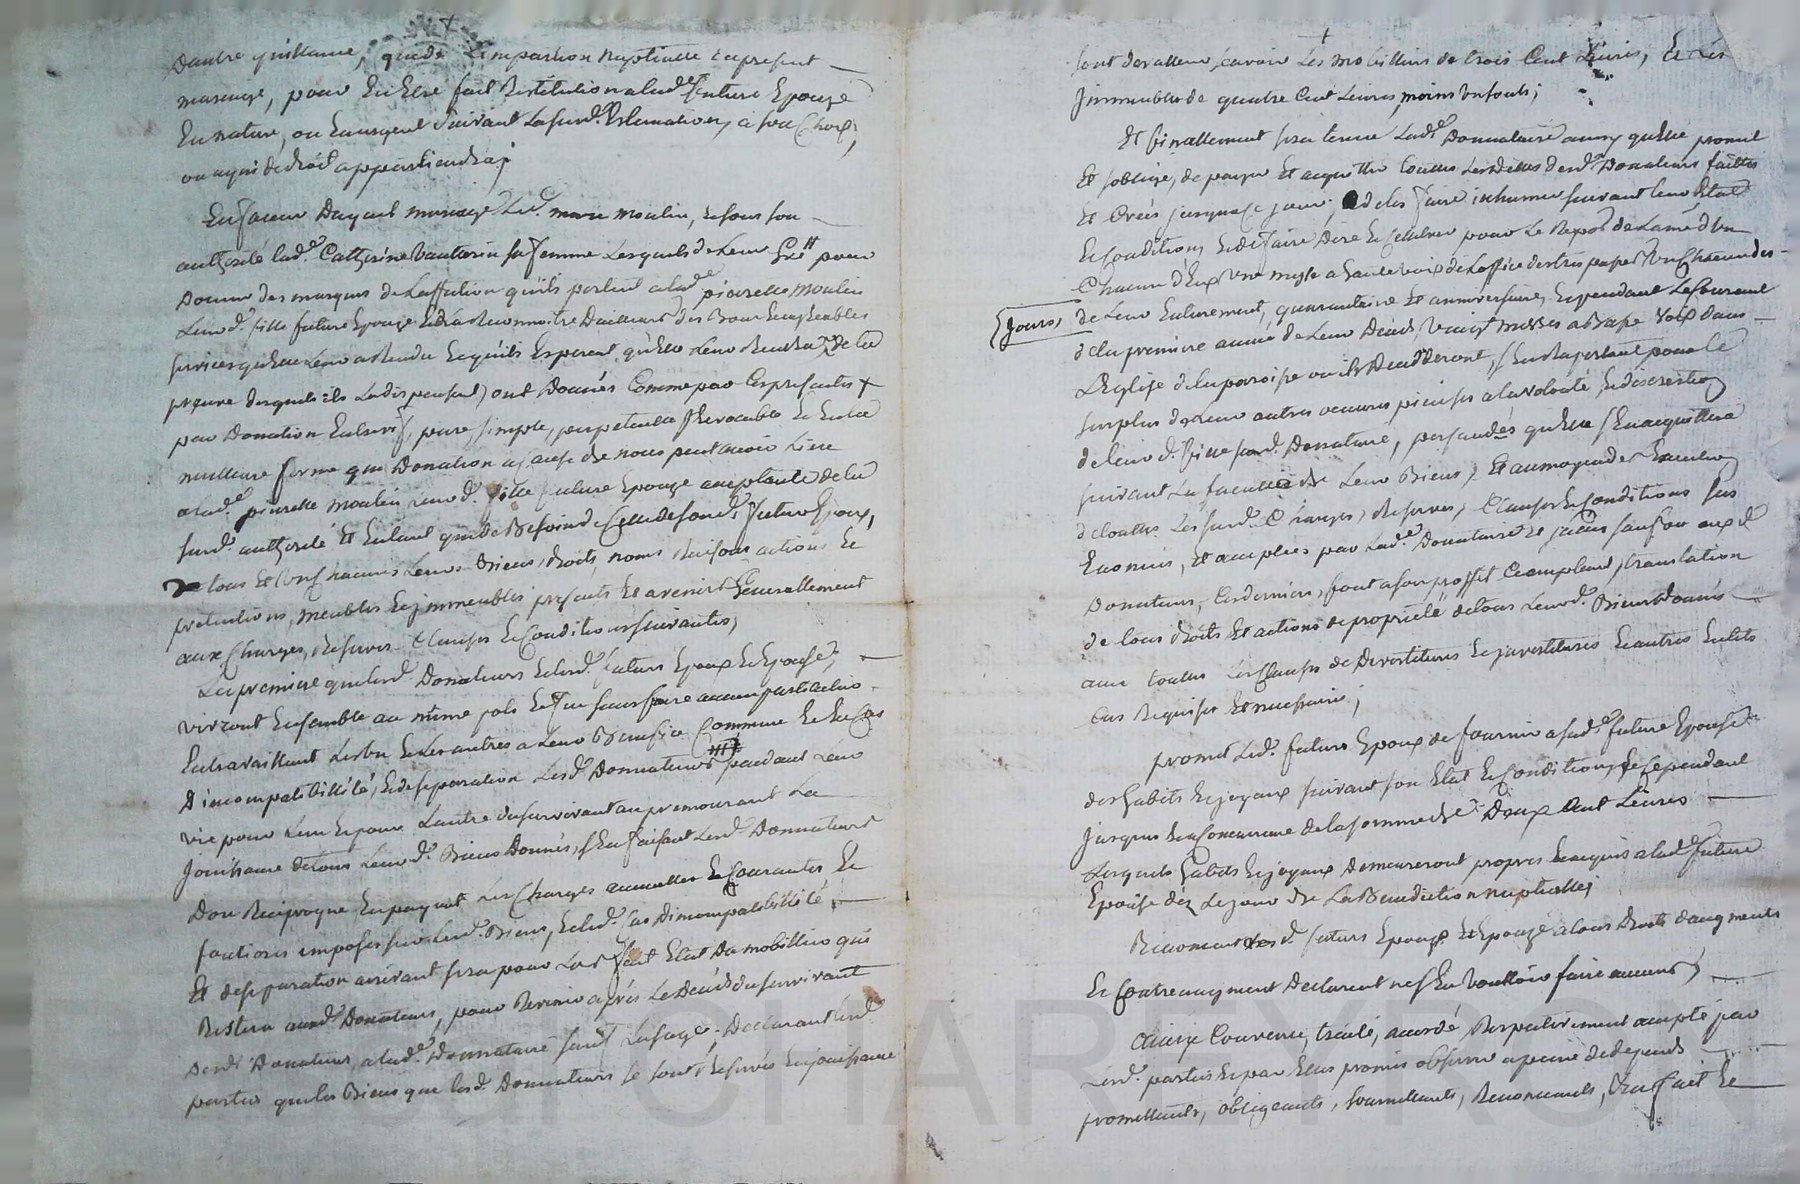 Dautre quittance, que de Limpartion Nuptialle du present
mariage, pour En Etre fait Restitution a lad.e future Epouze
En nature, ou En argent Suivant La susd.e Estimation, a son Choix,
ou a qui de droit appartiendra;
En faveur Duquel mariage Led. moulin, Et sous son
authorité lad.e Catherine Vautterin sa femme Lesquels de Leur Gré pour
Donner des marques de Laffection qu'ils portent a lad.e pierrette moulin
Leurd. fille future Epouze Et Reconnoitre Dailleurs des Bons Et agreables
services qu'elle Leur a Rendu Et qu'ils Esperent qu'elle Leur Rendra, de la
preuve desquels ils La dispensent) ont Donnés Comme par Ces presentes
par Donation Entrevifs, pure, simple, perpetuelle Irrevocable Et En la
meilleure forme que Donation a Cause de noces peut avoir Lieu
a lad.e pierrette moulin Leurd. fille future Epouze acceptante de la
susd. authorité Et En tant que de Besoin de Celle de sond. futur Epoux,
De tous Et Un Chacuns Leurs Biens, droits, noms Raisons actions Et
pretentions, meubles Et jmmeubles presents Et avenir Generallement
aux Charges, Reserves Clauses Et Conditions suivantes,
La premiere que Lesd. Donateurs Et Lesd. futurs Epoux Et Epouse,
vivront Ensemble au même pot Et feu sans faire aucun particulier
En travaillant Les Uns Et Les autres a Leur Benefice Commun Et En Cas
D'incompatibillité, Et de separation Lesd. Donnateurs pendant Leur
vie pour Lun Et pour Lautre du survivant au premourant La
Jouissance de tous Leurd. Biens Donnés, s'En faisant Lesd. Donnateurs
Don Reciproque En payant Les Charges annuelles Et Courantes Et
fonctions imposés sur Lesd. Biens, Et Led. Cas dincompatibillité
Et de separation arrivant sera pour Lors fait Etat Du mobillier qui
Restera auxd. Donateurs, pour Revenir aprés Le Decés du survivant
Desd. Donateurs, a lad.e Donnataire sauf Lusage, Declarant Lesd.
parties que Les Biens que Lesd. Donnateurs se sont Reservés En jouissance
sont de valleur scavoir Les mobilliers de trois Cent Livres, Et Les
Jmmeubles de quatre Cent Livres, moins Un sous;
Et finallement sera tenue Lad.e Donnataire ainsy qu'elle promet
Et s'oblige, de payer Et acquitter toutes Les dettes desd. Donateurs faittes
Et Créés jusqu'a Ce jour; Et de les faire inhumer suivant leur Etat
Et Conditions, Et de faire Dire Et Celebrer pour Le Repos de Lame d'Un
Chacun d'Eux Une messe a haute voix de Loffice des trepassés Un Chacun des
(jours) de Leur Enterrement, quarantaine Et anniversaire, Et pendant Le Courant
de la premiere année de Leur Decés, Vaingt messes a Basse Voix Dans
L'Eglise de la paroisse ou ils Decederont, s'En Raportant pour Le
surplus de Leur autres oeuvres pieuses a la volonté, Et discretion
de Leurd. fille sond. Donnataire, persuadés qu'elle s'En acquittera
suivant La faculté de Leur Biens, Et au moyen de L'execution
de toutes Les susd. Charges, Reserves, Clauses Et Conditions sus
Enoncés, Et acceptées par Lad.e Donnataire Et jcelles sauf ou auxd.
Donateurs, Ces derniers font a son proffit Et acceptant translation
de tous droits Et actions de propriété de tous Leurd. Biens donnés
avec toutes Les Clauses de Devestitures Et jnvestitures Et autres En tels
Cas Requises Et necessaires;
promet Led. futur Epoux de fournir a sad.e future Epouse
des habits Et joyaux suivant son Etat Et Condition, Et Cependant
jusques En la Concurrance de la somme de Deux Cent Livres
Lesquels habits Et joyaux demeureront propres Et acquis a lad.e future
Epouse dés Le jour de La Benediction nuptialle;
Renoncent Lesd. futurs Epoux Et Epouze a tous Droits d'augments
Et Contre augment Declarant ne s'En Voulloir faire aucuns;
Ainsy Convenu, traité, accordé Respectivement accepté par
Lesd. parties Et par Elles promis observer a peine de depends
promettants, obligeants, soumettants, Renonceants, &c fait Et
CHAREYRON